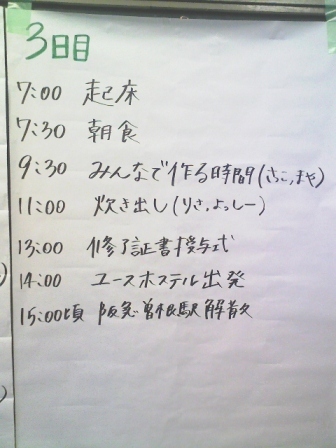 3日目
7:00 起床
7:30 朝食
9:30 みんなで作る時間(さちこ,まや)
11:00 炊き出し(りさ,よっしー)
13:00 修了証書授与式
14:00 ユースホステル出発
15:00頃 阪急曽根駅解散